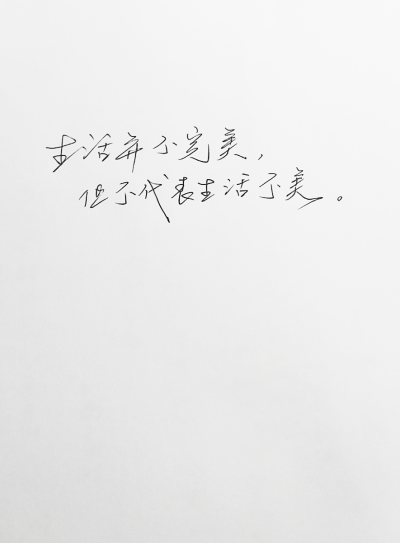 生活并不完美，
但不代表生活不美。